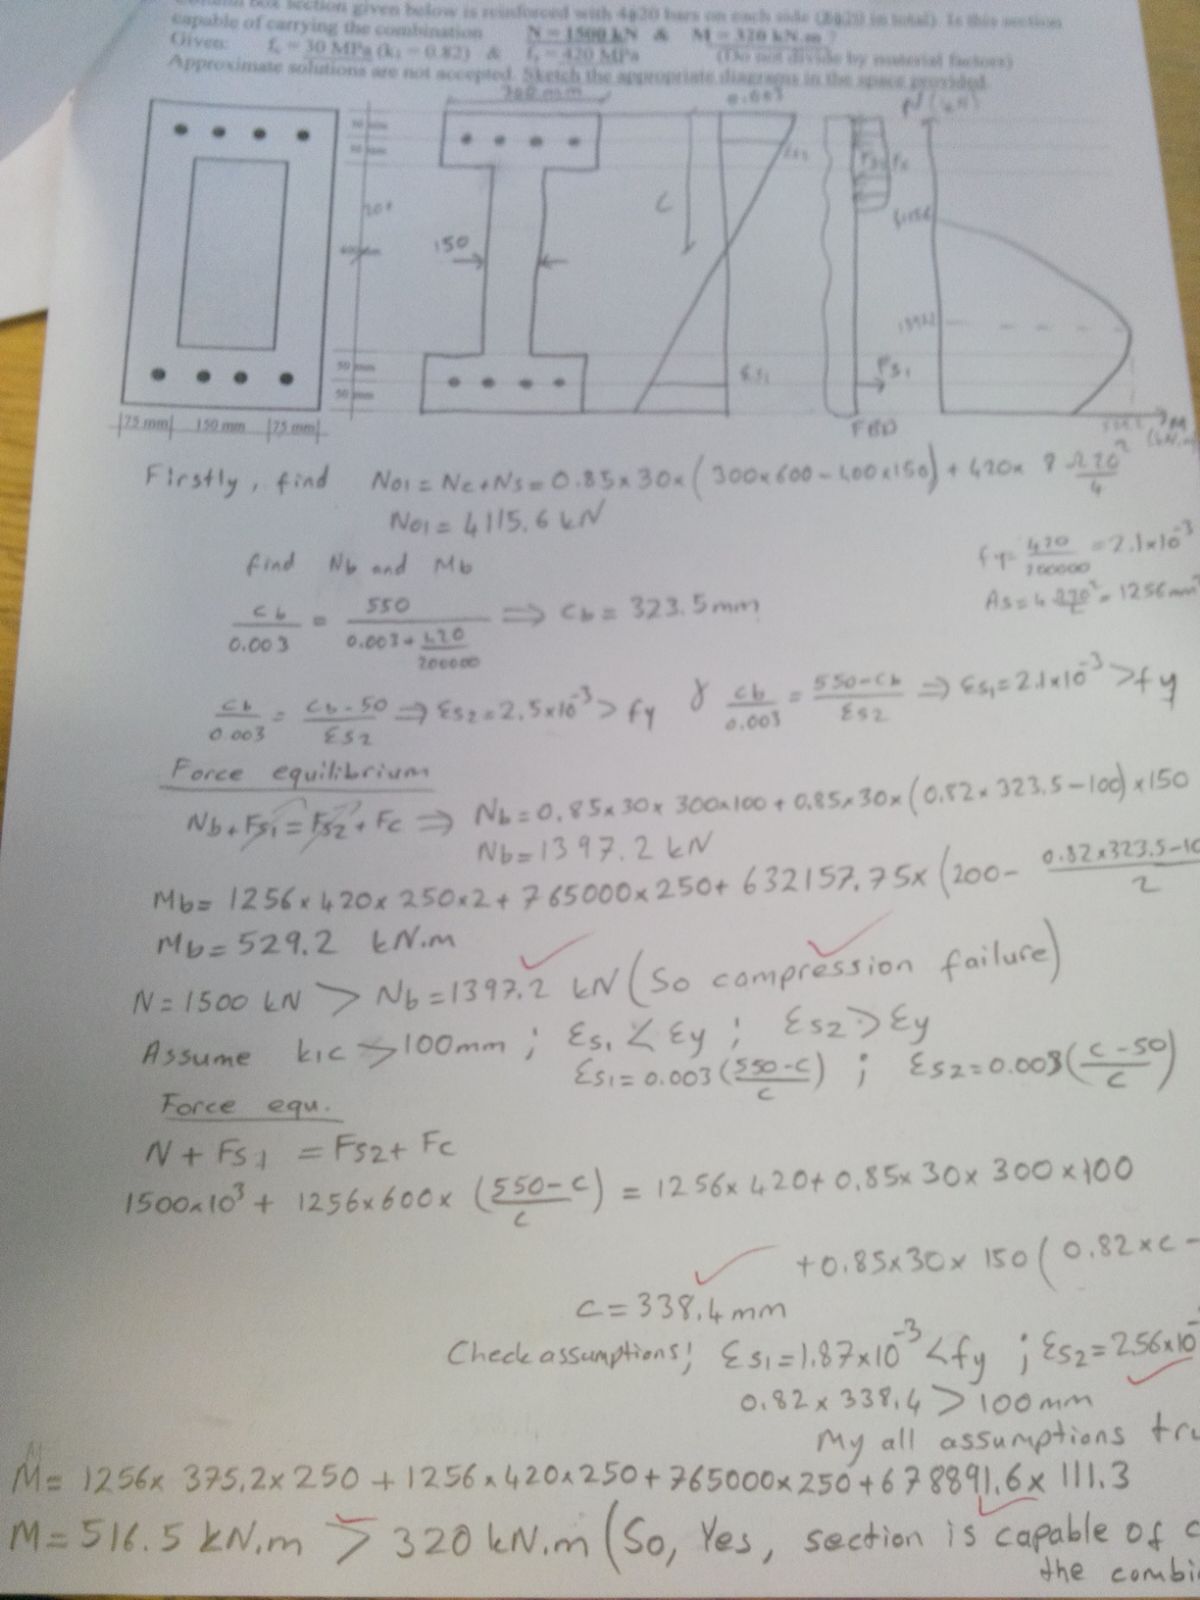 box section given below is reinforced with 4ϕ20 bars on each side (8ϕ20 in total). Is this section
capable of carrying the combination N = 1500 kN & M = 320 kN.m ?
Given: fc = 30 MPa (k1 = 0.82) & fy = 420 MPa (Do not divide by material factors)
Approximate solutions are not accepted. Sketch the appropriate diagrams in the space provided.
300 mm
0.003
N (kN)
εs2
Fs2 Fc
c
150
1397.2
50 mm
50 mm
εs1
Fs1
FBD
529.2
M (kN.m)
75 mm 150 mm 75 mm
Firstly, find No1 = Nc+Ns = 0.85x30x(300x600-400x150) + 420x 8 π20²/4
No1 = 4115.6 kN
find Nb and Mb
fy= 420/200000 = 2.1x10⁻³
As = 4 π20²/4 = 1256 mm²
cb/0.003 = 550/(0.003+420/200000) ⇒ cb = 323.5mm
cb/0.003 = cb-50/εs2 ⇒ εs2=2.5x10⁻³ > fy & cb/0.003 = 550-cb/εs2 ⇒ εs1=2.1x10⁻³ > fy
Force equilibrium
Nb+Fs1=Fs2+Fc ⇒ Nb=0.85x30x 300x100+0.85x30x(0.82x323.5-100)x150
Nb=1397.2 kN
Mb= 1256x420x250x2+765000x250+632157.75x(200- 0.82x323.5-10/2
Mb=529.2 kN.m
N=1500 kN > Nb=1397.2 kN (So compression failure)
Assume k1c > 100mm ; εs1 < εy ; εs2 > εy
εs1=0.003(550-c/c) ; εs2=0.003(c-50/c)
Force equ.
N + Fs1 = Fs2+ Fc
1500x10³ + 1256x600x (550-c/c) = 1256x420+0.85x30x300x100
+0.85x30x150(0.82xc -
c=338.4mm
Check assumptions; εs1=1.87x10⁻³ < fy ; εs2=2.56x10⁻
0.82x338.4 > 100mm
My all assumptions tru
M= 1256x 375.2x250 + 1256x420x250+765000x250+678891.6x111.3
M=516.5 kN.m > 320 kN.m (So, Yes, section is capable of c
the combi